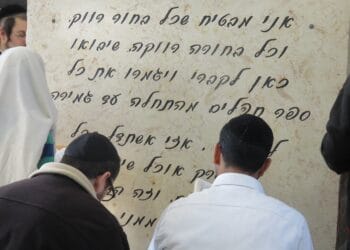 אני מבטיח שכל בחור רווק,
וכל בחורה רווקה, שיבואו
כאן לקברי ויגמרו את כל
ספר תהלים מהתחלה עד גמירה
אזי אשתדל בכל
אוכל
וזה
ממני